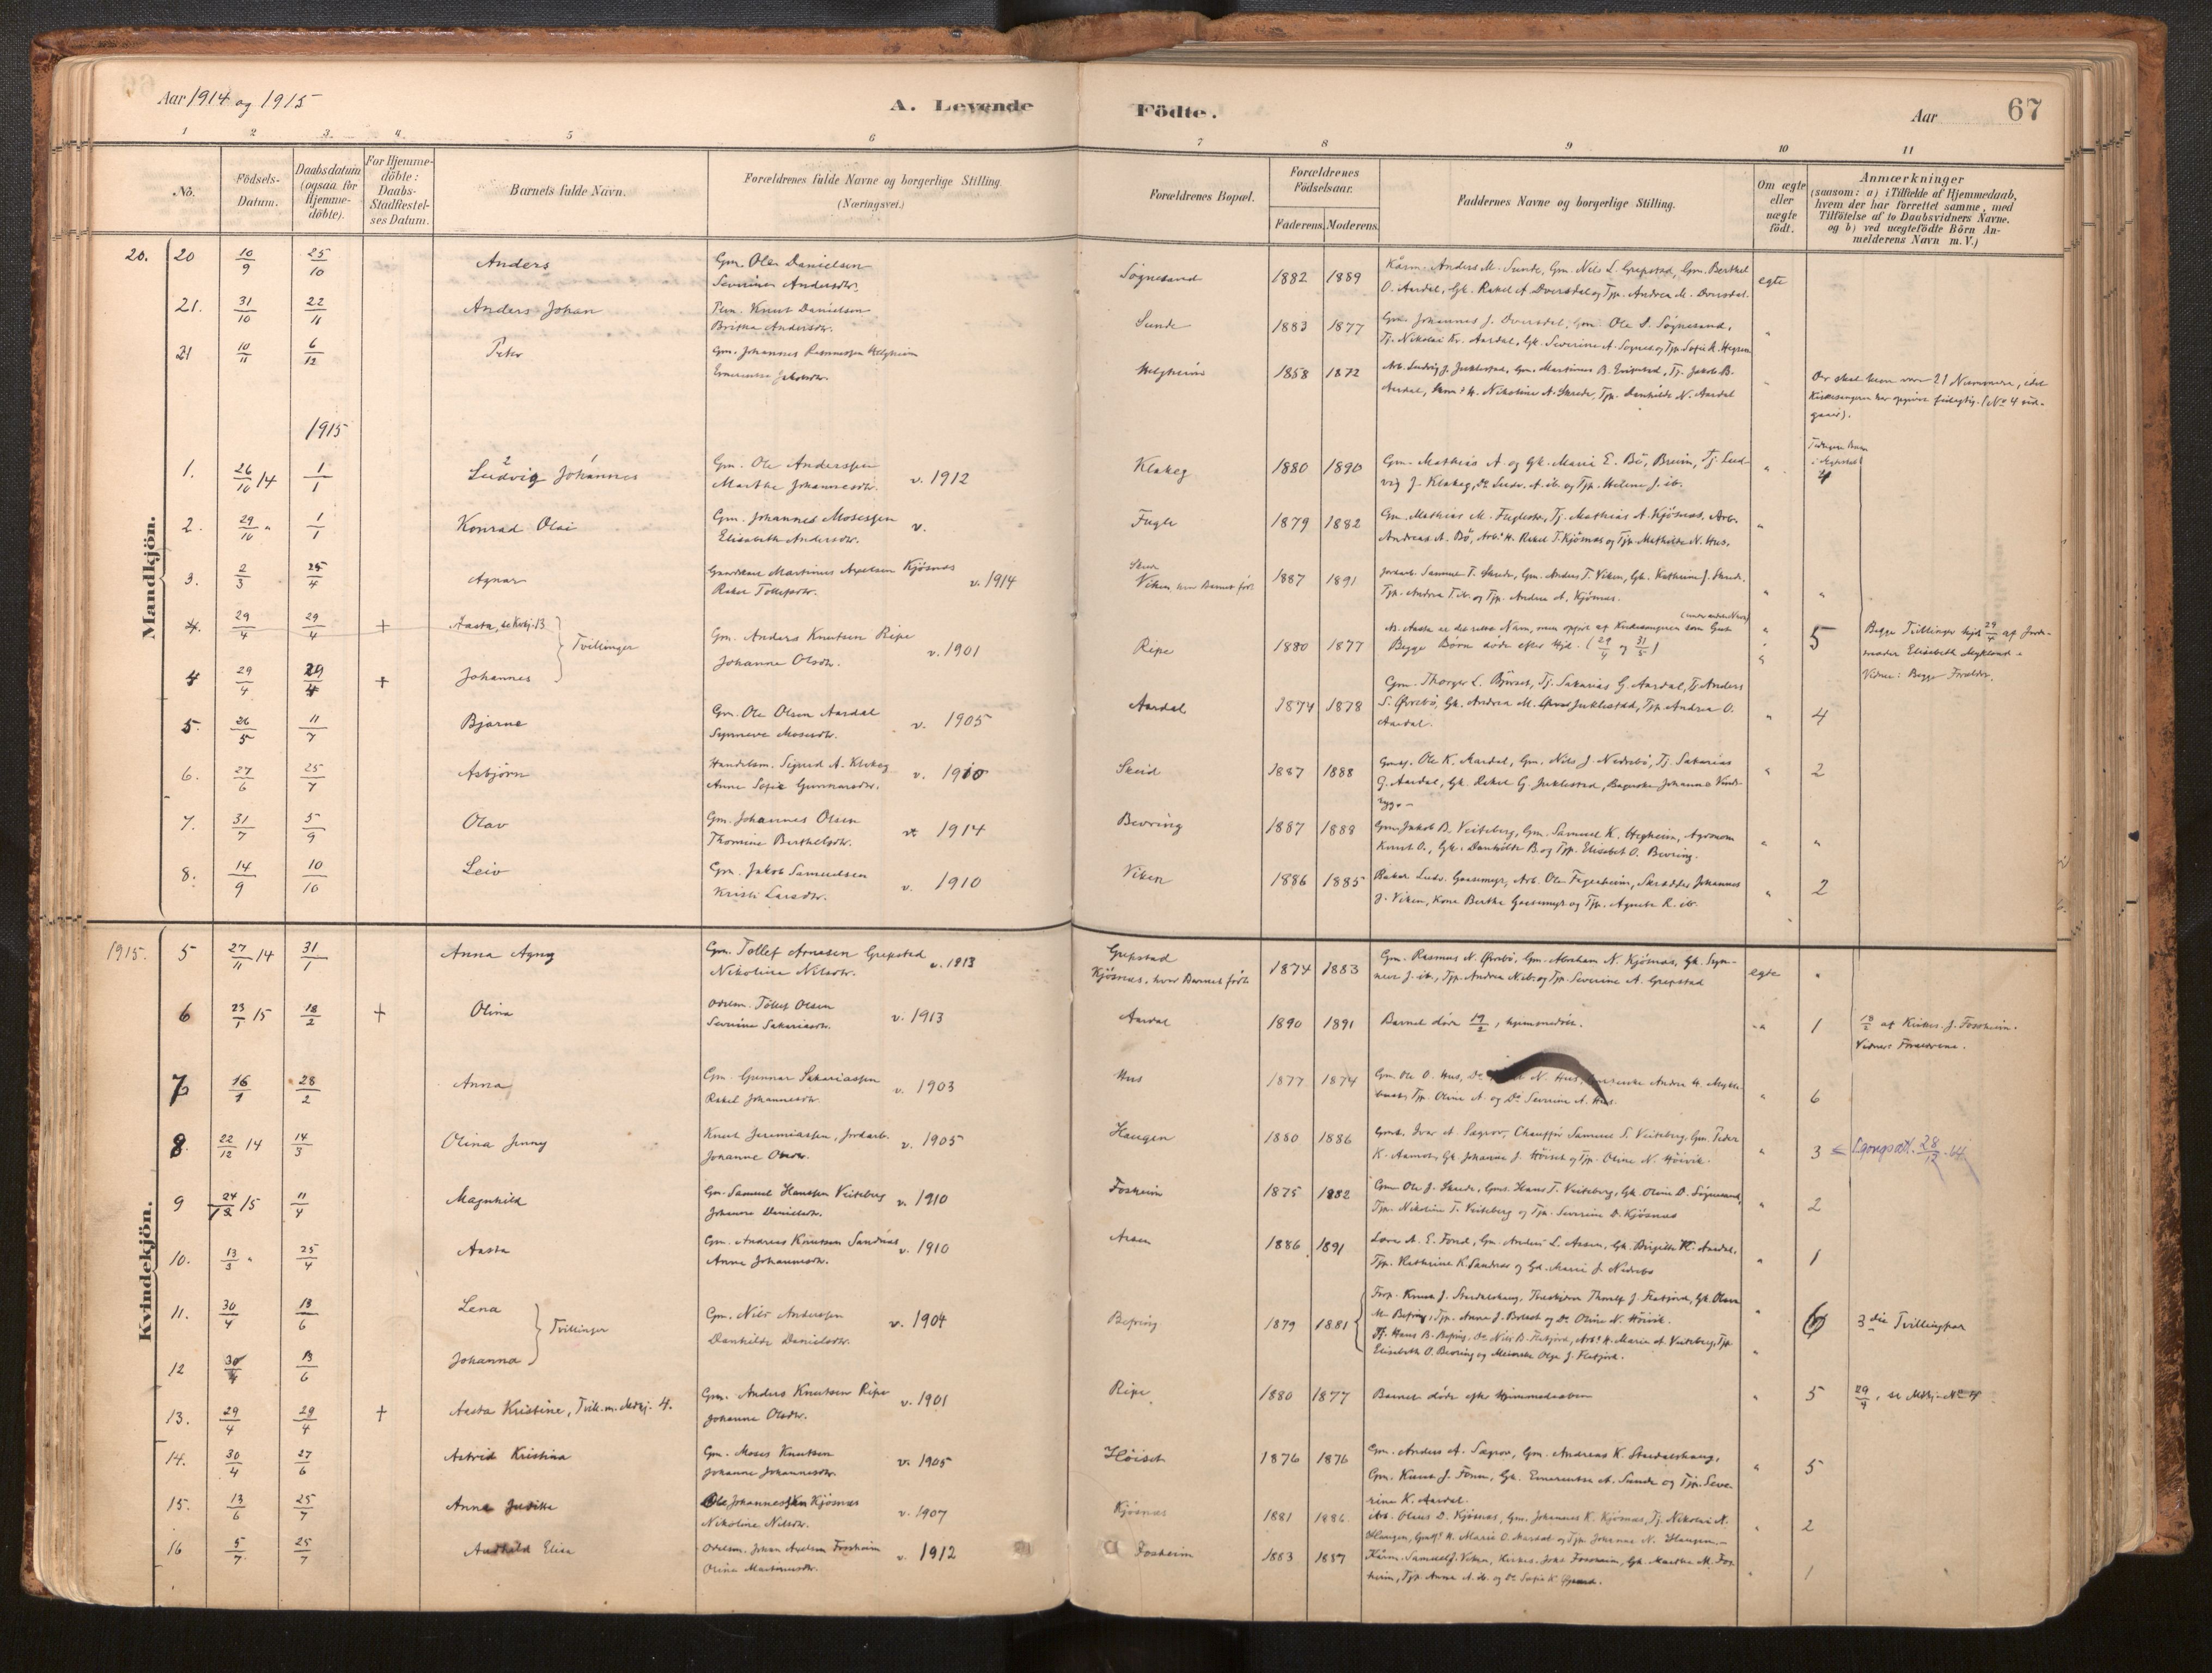 Aar 1914 og 1915
A. Levende
Födte.
Aar
67
1 2 3 4 5 6 7 8 9 10 11
No.
Födsels-Datum.
Daabsdatum (ogsaa for Hjemme-döbte).
For Hjemme-döbte: Daabs-Stadfæstel-ses Datum.
Barnets fulde Navn.
Forældrenes fulde Navne og borgerlige Stilling.
(Næringsvei.)
Forældrenes Bopæl.
Forældrenes Födselsaar.
Faderens. Moderens.
Faddernes Navne og borgerlige Stilling.
Om ægte eller uægte födt.
Anmærkninger
(saasom: a) i Tilfælde af Hjemmedaab,
hvem der har forrettet samme, med
Tilföielse af to Daabsvidners Navne,
og b) ved uægtefödte Börn An-
melderens Navn m. V.)
Mandkjön.
20. 20 10/9 25/10 Anders
Gm. Ole Danielsen
Severine Andersdtr.
Søgnesand 1882 1889
Kårm. Anders M. Sunde, Gm. Nils L. Grepstad, Gm. Berthel
O. Aardal, Gk. Rakel A. Dvergsdal og Tjp. Andrea M.
egte
21. 31/10 22/11 Anders Johan
Knut Danielsen
Andersdtr.
Sunde 1883 1877
Gm. Johannes J. Dvergsdal, Gm. Ole S. Søgnesand,
Tj. Nikolai Kr. Aardal, Gk. Severine A. Sognes og Tjp. Sofie K.
21 10/11 6/12 Peter
Gm. Johannes Rasmussen Helgheim
Jakobsdtr.
Helgheim 1858 1872
Arb. Ludvig J. Juklestad, Gm. Martinus B., Tj. Jakob B.
Aardal, Nikoline A. Skrede, Tjp. Danhilde N. Aardal
Der skal kun være 21 Nummere, idet
Kirkesangeren har opgivet feilagtig. (No 4 ud-
gaar).
1915
1. 26/10 14 1/1 Ludvig Johannes
Gm. Ole Anderssen
Marthe Johannesdtr. v. 1912
Klakeg 1880 1890
Gm. Mathias A. og Gk. Marie E. Bö, Breim, Tj. Lud-
vig J. Klakeg, Do Ludv. A. ib. og Tjp. Helene J. ib.
4
2. 29/10 " 1/1 Konrad Olai
Gm. Johannes Mosessen v.
Elisabeth Andersdtr.
Fugle 1879 1882
Gm. Mathias M. Fugleset, Tj. Mathias A. Kjösnas, Arb.
Andreas A. Bö, Arb. H. Rakel T. Kjösnas og Tjp. Mathilde N. Hus.
3. 2/3 25/4 Agnar
Martinus Axelsen Kjösnas v. 1914
Rakel Tollefsdtr.
Viken, hvor Barnet födt 1887 1891
Samuel T. Skrede, Gm. Anders T. Viken, Gk. Kathrine J. Skrede,
Tjp. Andrea T. ib. og Tjp. Andrea A. Kjösnas.
4. 29/4 29/4 + Aasta, se Kvkj. 13
Tvillinger
Gm. Anders Knutsen Ripe v. 1901
Johanne Olsdtr.
Ripe 1880 1877
Begge Börn döde efter Hjd. (29/4 og 31/5)
5
Begge Tvillinger hjd. 29/4 af Jorde-
moder Elisabeth Myklund.
Vidner: Begge Forældre.
4 29/4 29/4 + Johannes
5. 26/5 11/7 Bjarne
Gm. Ole Olsen Aardal v. 1905
Synneve Mosesdtr.
Aardal 1874 1878
Gm. Thorger L. Björset, Tj. Sakarias G. Aardal, Tj. Anders
S. Øvrebö, Gk. Andrea M. Juklestad, Tjp. Andrea O.
Aardal.
4
6. 27/6 25/7 Asbjörn
Handelsm. Sigurd A. Klakeg v. 1910
Anne Sofie Gunnarsdtr.
Skeid 1887 1888
Ole K. Aardal, Gm. Nils J. Nedrebö, Tj. Sakarias
G. Aardal, Gk. Rakel G. Juklestad, Johanne
2
7. 31/7 5/9 Olav
Gm. Johannes Olsen 1914
Thomine Berthelsdtr.
Bevring 1887 1888
Gm. Jakob B. Veiteberg, Gm. Samuel K. Hegheim, Agronom
Knut O., Gk. Danhilde B. og Tjp. Elisabet O. Bevring.
8. 14/9 10/10 Leiv
Gm. Jakob Samuelsen v. 1910
Kristi Larsdtr.
Viken 1886 1885
Baker Ludv. Gaasemyr, Arb. Ole Fegerheim, Skrædder Johannes
J. Viken, Kone Berthe Gaasemyr og Tjp. Agnete R. ib.
2
Kvindekjön.
1915. 5 27/11 14 31/1 Anna Agny
Gm. Tollef Arnesen Grepstad v. 1913
Nikoline Nilsdtr.
Grepstad
Kjösnas, hvor Barnet födt 1874 1883
Gm. Rasmus N. Øvrebö, Gm. Abraham N. Kjösnas, Gk. Syn-
neve J. ib., Tjp. Andrea N. ib. og Tjp. Severine A. Grepstad
egte
6 23/1 15 18/2 + Olina
Tollef Olsen v. 1913
Severine Sakariasdtr.
Aardal 1890 1891
Barnet döde 19/2, hjemmedöbt.
1
18/2 af Kirkes. J. Fossheim.
Vidner: Forældrene.
7 16/1 28/2 Anna
Gm. Gunnar Sakariassen v. 1903
Rakel Johannesdtr.
Hus 1877 1874
Gm. Ole O. Hus, Do N. Hus, Andrea H.
Tjp. Oline A. og Do Severine A. Hus.
6
8. 22/12 14 14/3 Olina Jenny
Knut Jeremiassen, Jordarb. v. 1905
Johanne Olsdtr.
Haugen 1880 1886
Iver A. Sægrov, Chauffør Samuel S. Veiteberg, Gm. Peder
K. Aamot, Gk. Johanne J. Höiset og Tjp. Oline N. Höivik.
3
28/12 64
9 24/2 15 11/4 Magnhild
Gm. Samuel Hanssen Veiteberg v. 1910
Johanne Danielsdtr.
Fosheim 1875 1882
Gm. Ole J. Skrede, Hans T. Veiteberg, Gk. Oline D. Sögnesand,
Tjp. Nikoline T. Veiteberg og Tjp. Severine D. Kjösnas
2
10. 13/3 " 25/4 Aasta
Gm. Andreas Knutsen Sandnas v. 1910
Anne Johannesdtr.
Assen 1886 1891
A. E. Fond, Gm. Anders L. Assen, Gk. Brigitte K. Aardal,
Tjp. Kathrine K. Sandnas og Gd. Marie J. Nedrebö
1
11. 30/4 13/6 Lena
Tvillinger
Gm. Nils Anderssen v. 1904
Danhilde Danielsdtr.
Befring 1879 1881
Knut J. Stardalshaug, Thorolf J. Flatjord, Gk. Oline
M. Befring, Tjp. Anne J. og Do Oline N. Höivik.
Tj. Hans B. Befring, Do Nils B. Flatjord, Arb. H. Marie A. Veiteberg, Tjp.
Elisabeth O. Bevring og Olga J. Flatjord.
6
3die Tvillingpar
12 30/4 13/6 Johanna
13. 29/4 29/4 + Aasta Kristine, Tvill. m. Mdkj. 4.
Gm. Anders Knutsen Ripe v. 1901
Johanne Olsdtr.
Ripe 1880 1877
Barnet döde efter Hjemmedaaben
5
29/4, se Mdkj. No 4
14. 30/4 27/6 Astrid Kristina
Gm. Moses Knutsen v. 1905
Johanne Johannesdtr.
Höiset 1876 1876
Gm. Anders A. Sægrov, Gm. Andreas K. Stardalshaug,
Gm. Knut J. Fonn, Gk. Emerentse A. Sunde og Tjp. Seve-
rine K. Aardal.
5
15. 13/6 25/7 Anna Judithe
Ole Johannessen Kjösnas v. 1907
Nikoline Nilsdtr.
Kjösnas 1881 1886
Arb. Olaus D. Kjösnas, Gm. Johannes K. Kjösnas, Tj. Nikolai N.
Haugen, H. Marie O. Aardal og Tjp. Johanne N. Haugen.
2
16 5/7 25/7 Aadhild Elisa
Johan Axelsen Fossheim v. 1912
Orina Martinusdtr.
Fosheim 1883 1887
Kårm. Samuel J. Viken, Kirkes. Johs. Fossheim, Gk. Marthe M. Fos-
heim, Tjp. Anna A. ib. og Do Sofie K.
1